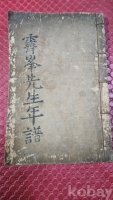 霽峯先生年譜
kobay